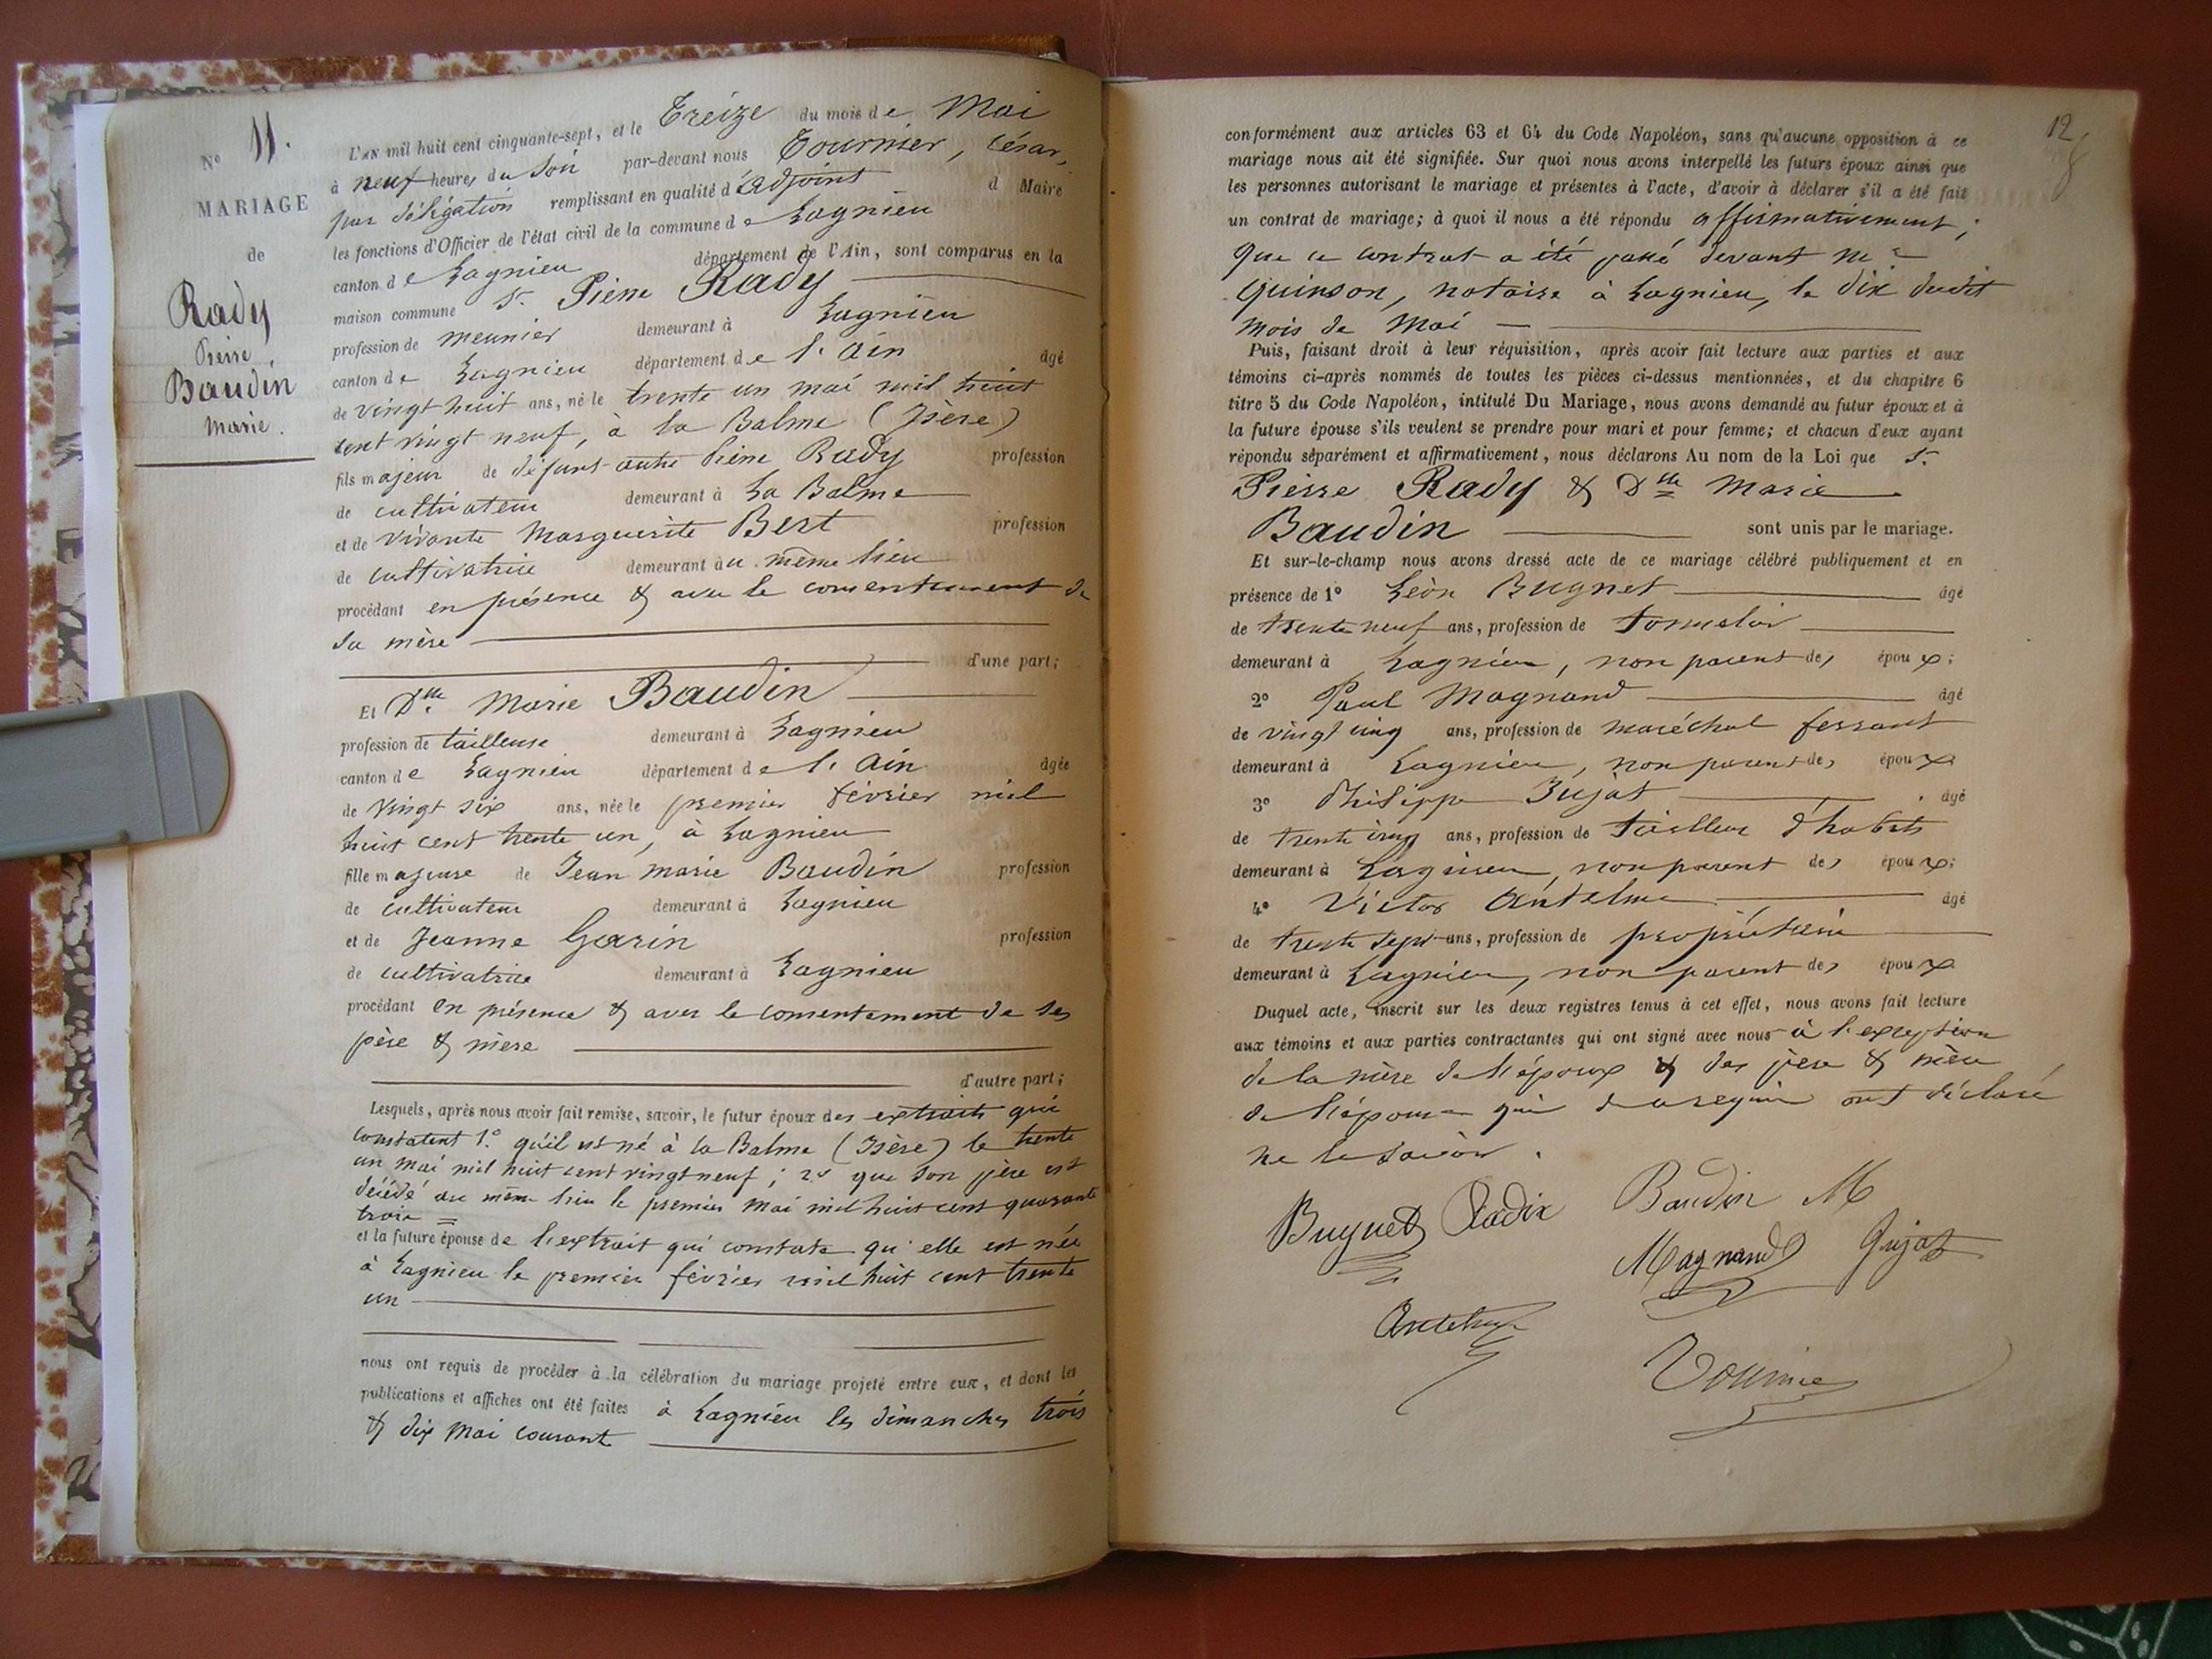 N° 11.
MARIAGE
de
Rady
Pierre,
Baudin
Marie.
L'AN mil huit cent cinquante-sept, et le Treize du mois de Mai
à neuf heures du soir par-devant nous Tournier, César,
par délégation remplissant en qualité d'Adjoint d Maire
les fonctions d'Officier de l'état civil de la commune de Lagnieu
canton de Lagnieu département de l'Ain, sont comparus en la
maison commune Sr. Pierre Rady
profession de meunier demeurant à Lagnieu
canton de Lagnieu département de l'Ain âgé
de vingt huit ans, né le trente un mai mil huit
cent vingt neuf, à la Balme (Isère)
fils majeur de défunt autre Pierre Rady profession
de cultivateur demeurant à La Balme
et de vivante Marguerite Bert profession
de cultivatrice demeurant au même lieu
procédant en présence & avec le consentement de
sa mère
d'une part;
Et Dlle. Marie Baudin
profession de tailleuse demeurant à Lagnieu
canton de Lagnieu département de l'Ain âgée
de vingt six ans, née le premier février mil
huit cent trente un, à Lagnieu
fille majeure de Jean Marie Baudin profession
de cultivateur demeurant à Lagnieu
et de Jeanne Garin profession
de cultivatrice demeurant à Lagnieu
procédant en présence & avec le consentement de ses
père & mère
d'autre part;
Lesquels, après nous avoir fait remise, savoir, le futur époux des extraits qui
constatent 1.° qu'il est né à la Balme (Isère) le trente
un mai mil huit cent vingt neuf; 2° que son père est
décédé au même lieu le premier mai mil huit cent quarante
trois =
et la future épouse de l'extrait qui constate qu'elle est née
à Lagnieu le premier février mil huit cent trente
un
nous ont requis de procéder à la célébration du mariage projeté entre eux, et dont les
publications et affiches ont été faites à Lagnieu les dimanches trois
& dix Mai courant
12
conformément aux articles 63 et 64 du Code Napoléon, sans qu'aucune opposition à ce
mariage nous ait été signifiée. Sur quoi nous avons interpellé les futurs époux ainsi que
les personnes autorisant le mariage et présentes à l'acte, d'avoir à déclarer s'il a été fait
un contrat de mariage; à quoi il nous a été répondu affirmativement;
que ce contrat a été passé devant Me
Quinson, notaire à Lagnieu, le dix dudit
mois de Mai
Puis, faisant droit à leur réquisition, après avoir fait lecture aux parties et aux
témoins ci-après nommés de toutes les pièces ci-dessus mentionnées, et du chapitre 6
titre 5 du Code Napoléon, intitulé Du Mariage, nous avons demandé au futur époux et à
la future épouse s'ils veulent se prendre pour mari et pour femme; et chacun d'eux ayant
répondu séparément et affirmativement, nous déclarons Au nom de la Loi que Sr.
Pierre Rady & Dlle Marie
Baudin sont unis par le mariage.
Et sur-le-champ nous avons dressé acte de ce mariage célébré publiquement et en
présence de 1° Léon Bugnet âgé
de trente neuf ans, profession de tonnelier
demeurant à Lagnieu, non parent des époux;
2° Paul Magnand âgé
de vingt cinq ans, profession de maréchal ferrant
demeurant à Lagnieu, non parent des époux
3° Philippe Jujat âgé
de trente cinq ans, profession de tailleur d'habits
demeurant à Lagnieu, non parent des époux;
4° Victor Antelme âgé
de trente sept ans, profession de propriétaire
demeurant à Lagnieu, non parent des époux
Duquel acte, inscrit sur les deux registres tenus à cet effet, nous avons fait lecture
aux témoins et aux parties contractantes qui ont signé avec nous à l'exception
de la mère de l'époux & des père & mère
de l'épouse qui de ce requis ont déclaré
ne le savoir.
Buguet Radix Baudin M
Magnand Jujat
Antelme
Tournier